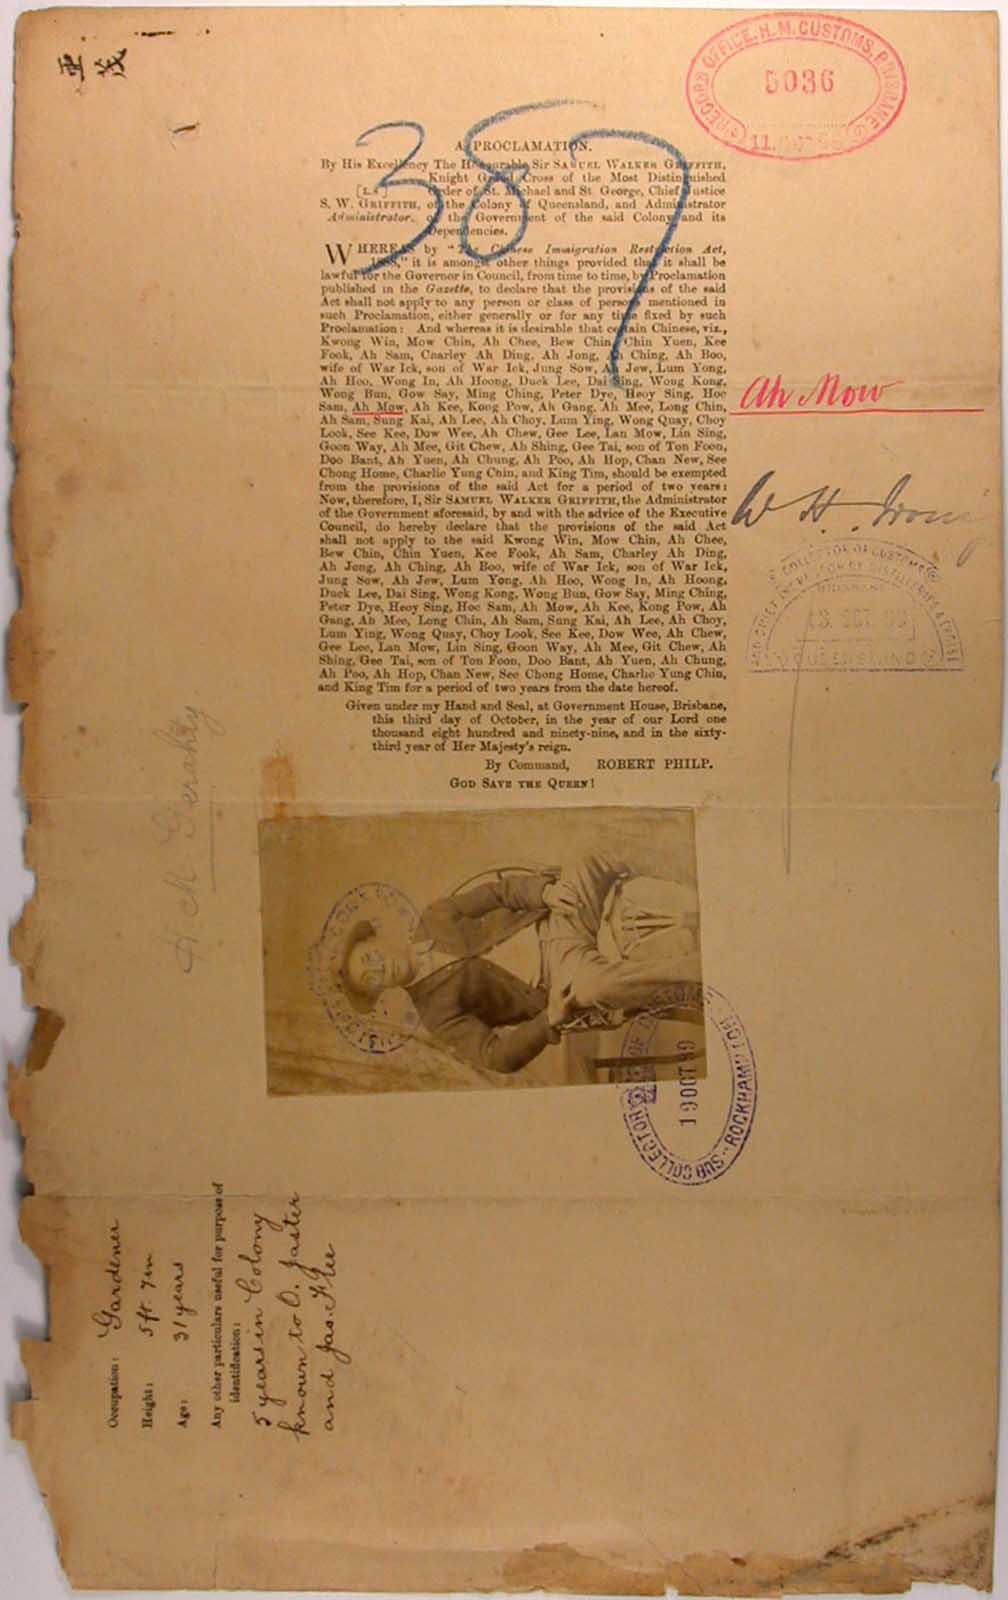 亞
茂
RECORD OFFICE, H.M. CUSTOMS, BRISBANE
5036
387
A PROCLAMATION.
By His Excellency The Honourable Sir SAMUEL WALKER GRIFFITH,
Knight Grand Cross of the Most Distinguished
[L.S.] Order of St. Michael and St. George, Chief Justice
S. W. GRIFFITH, of the Colony of Queensland, and Administrator
Administrator. of the Government of the said Colony and its
Dependencies.
WHEREAS by "The Chinese Immigration Restriction Act,
1888," it is amongst other things provided that it shall be
lawful for the Governor in Council, from time to time, by Proclamation
published in the Gazette, to declare that the provisions of the said
Act shall not apply to any person or class of persons mentioned in
such Proclamation, either generally or for any time fixed by such
Proclamation: And whereas it is desirable that certain Chinese, viz.,
Kwong Win, Mow Chin, Ah Chee, Bew Chin, Chin Yuen, Kee
Fook, Ah Sam, Charley Ah Ding, Ah Jong, Ah Ching, Ah Boo,
wife of War Ick, son of War Ick, Jung Sow, Ah Jew, Lum Yong,
Ah Hoo, Wong In, Ah Hoong, Duck Lee, Dai Sing, Wong Kong,
Wong Bun, Gow Say, Ming Ching, Peter Dye, Heoy Sing, Hoc
Sam, Ah Mow, Ah Kee, Kong Pow, Ah Gang, Ah Mee, Long Chin,
Ah Sam, Sung Kai, Ah Lee, Ah Choy, Lum Ying, Wong Quay, Choy
Look, See Kee, Dow Wee, Ah Chew, Gee Lee, Lan Mow, Lin Sing,
Goon Way, Ah Mee, Git Chew, Ah Shing, Gee Tai, son of Ton Foon,
Doo Bant, Ah Yuen, Ah Chung, Ah Poo, Ah Hop, Chan New, See
Chong Home, Charlie Yung Chin, and King Tim, should be exempted
from the provisions of the said Act for a period of two years:
Now, therefore, I, Sir SAMUEL WALKER GRIFFITH, the Administrator
of the Government aforesaid, by and with the advice of the Executive
Council, do hereby declare that the provisions of the said Act
shall not apply to the said Kwong Win, Mow Chin, Ah Chee,
Bew Chin, Chin Yuen, Kee Fook, Ah Sam, Charley Ah Ding,
Ah Jong, Ah Ching, Ah Boo, wife of War Ick, son of War Ick,
Jung Sow, Ah Jew, Lum Yong, Ah Hoo, Wong In, Ah Hoong,
Duck Lee, Dai Sing, Wong Kong, Wong Bun, Gow Say, Ming Ching,
Peter Dye, Heoy Sing, Hoc Sam, Ah Mow, Ah Kee, Kong Pow, Ah
Gang, Ah Mee, Long Chin, Ah Sam, Sung Kai, Ah Lee, Ah Choy,
Lum Ying, Wong Quay, Choy Look, See Kee, Dow Wee, Ah Chew,
Gee Lee, Lan Mow, Lin Sing, Goon Way, Ah Mee, Git Chew, Ah
Shing, Gee Tai, son of Ton Foon, Doo Bant, Ah Yuen, Ah Chung,
Ah Poo, Ah Hop, Chan New, See Chong Home, Charlie Yung Chin,
and King Tim for a period of two years from the date hereof.
Given under my Hand and Seal, at Government House, Brisbane,
this third day of October, in the year of our Lord one
thousand eight hundred and ninety-nine, and in the sixty-
third year of Her Majesty's reign.
By Command, ROBERT PHILP.
GOD SAVE THE QUEEN!
Ah Mow
W. H. Irving
COLLECTOR OF CUSTOMS
AND CHIEF INSPECTOR OF DISTILLERIES & EXCISE
BRISBANE
13 OCT. 99
QUEENSLAND
Geraghty
SUB COLLECTOR OF CUSTOMS
19 OCT 99
ROCKHAMPTON
Occupation: Gardener
Height: 5ft. 7in
Age: 31 years
Any other particulars useful for purpose of
identification:
5 years in Colony
known to O. Jaster
and Jas. Flee